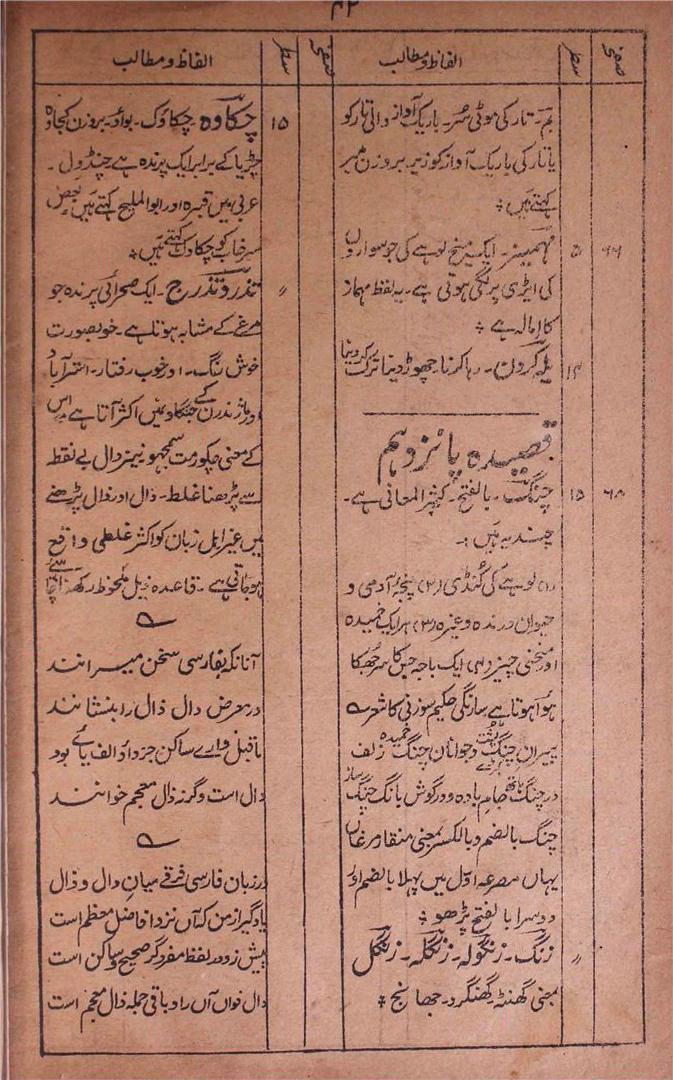 ۴۲
صفحہ سطر الفاظ و مطالب صفحہ سطر الفاظ و مطالب
بم ۔ تار کی موٹی سُر ۔ باریک آواز والی تار کو
یا تار کی باریک آواز کو زیر بروزن میر
کہتے ہیں ؞
۶۶ ۵ مہمیز ۔ ایک میخ لوہے کی جو سواروں
کی ایڑی پر لگی ہوتی ہے ۔ یہ لفظ مہماز
کا امالہ ہے ؞
۱۴ یلہ کردن ۔ رہا کرنا چھوڑ دینا ترک کر دینا
قصیدہ پانزدہم
۶۸ ۱۵ چنگ ۔ بالفتح ۔ کثیر المعانی ہے ۔
چند یہ ہیں :۔
(۱) لوہے کی کُنڈی (۲) پنجۂ آدمی و
حیوان درندہ وغیرہ (۳) ہر ایک خمیدہ
اور منحنی چیز (۴) ایک باجہ جس کا سر جُھکا
ہوا ہوتا ہے سارنگی حکیم سوزنی کا شعر ؎
پیرانِ چنگ پشت و جوانان چنگ زلف
خمیدہ
در چنگ جام بادہ و در گوش بانگ چنگ
ہاتھ ساز
چنگ بالضم و بالکسر بمعنی منقار مرغاں
یہاں مصرعہ اوّل میں پہلا بالضم اور
دوسرا بالفتح پڑھو ؞
〃 زنگ ۔ زنگولہ ۔ زنگلہ ۔ زنگل
بمعنی گھنٹہ گھنگرو ۔ جھانج ؞
۱۵ چکاوہ ۔ چکاوک ۔ بواؤ ۔ بروزن کجاوہ
چڑیا کے برابر ایک پرندہ ہے چنڈول ۔
عربی میں قبرہ اور ابوالملیح کہتے ہیں بعض
سرخاب کو چکاوک کہتے ہیں ؞
〃 تذرو تذرج ۔ ایک صحرائی پرندہ جو
مرغے کے مشابہ ہوتا ہے ۔ خوبصورت
خوش رنگ ۔ اور خوب رفتار ۔ استرآباد
اور ماژندرن کے جنگلو نمیں اکثر آتا ہے اس
کے معنی چکور مت سمجھو نیز دال بے نقط
سے پڑھنا غلط ۔ دال اور ذال پڑھنے
میں غیر اہل زبان کو اکثر غلطی واقع
ہو جاتی ہے ۔ قاعدہ ذیل ملحوظ رکھنا اچھا ہے
؎
آنانکہ بفارسی سخن میرانند
در معرض دال ذال را بنشانند
ماقبل وارے ساکن جز داؤ الف یائے بود
دال است وگرنہ ذال معجم خوانند
؎
در زبان فارسی فرقے میان دال و ذال
یاد گیر از من کہ آں نزد افاضل معظم است
پیش زو در لفظ مفرد گر صحیح و ساکن است
دال خواں آں را و باقی جملہ ذال معجم است